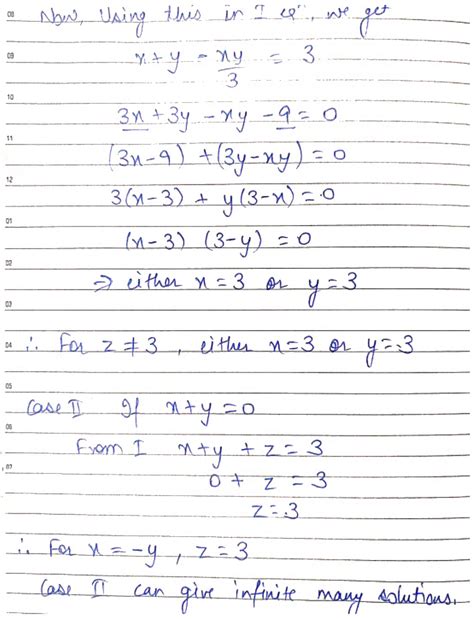 08 Now, Using this in I eqⁿ, we get
09 x + y - xy/3 = 3
10 3x + 3y - xy - 9 = 0
11 (3x - 9) + (3y - xy) = 0
12 3(x - 3) + y(3 - x) = 0
01 (x - 3) (3 - y) = 0
02 ⇒ either x = 3 or y = 3
03
04 ∴ For z ≠ 3, either x = 3 or y = 3
05 Case II If x + y = 0
06 From I x + y + z = 3
07 0 + z = 3
z = 3
∴ For x = -y, z = 3
Case II can give infinite many solutions.